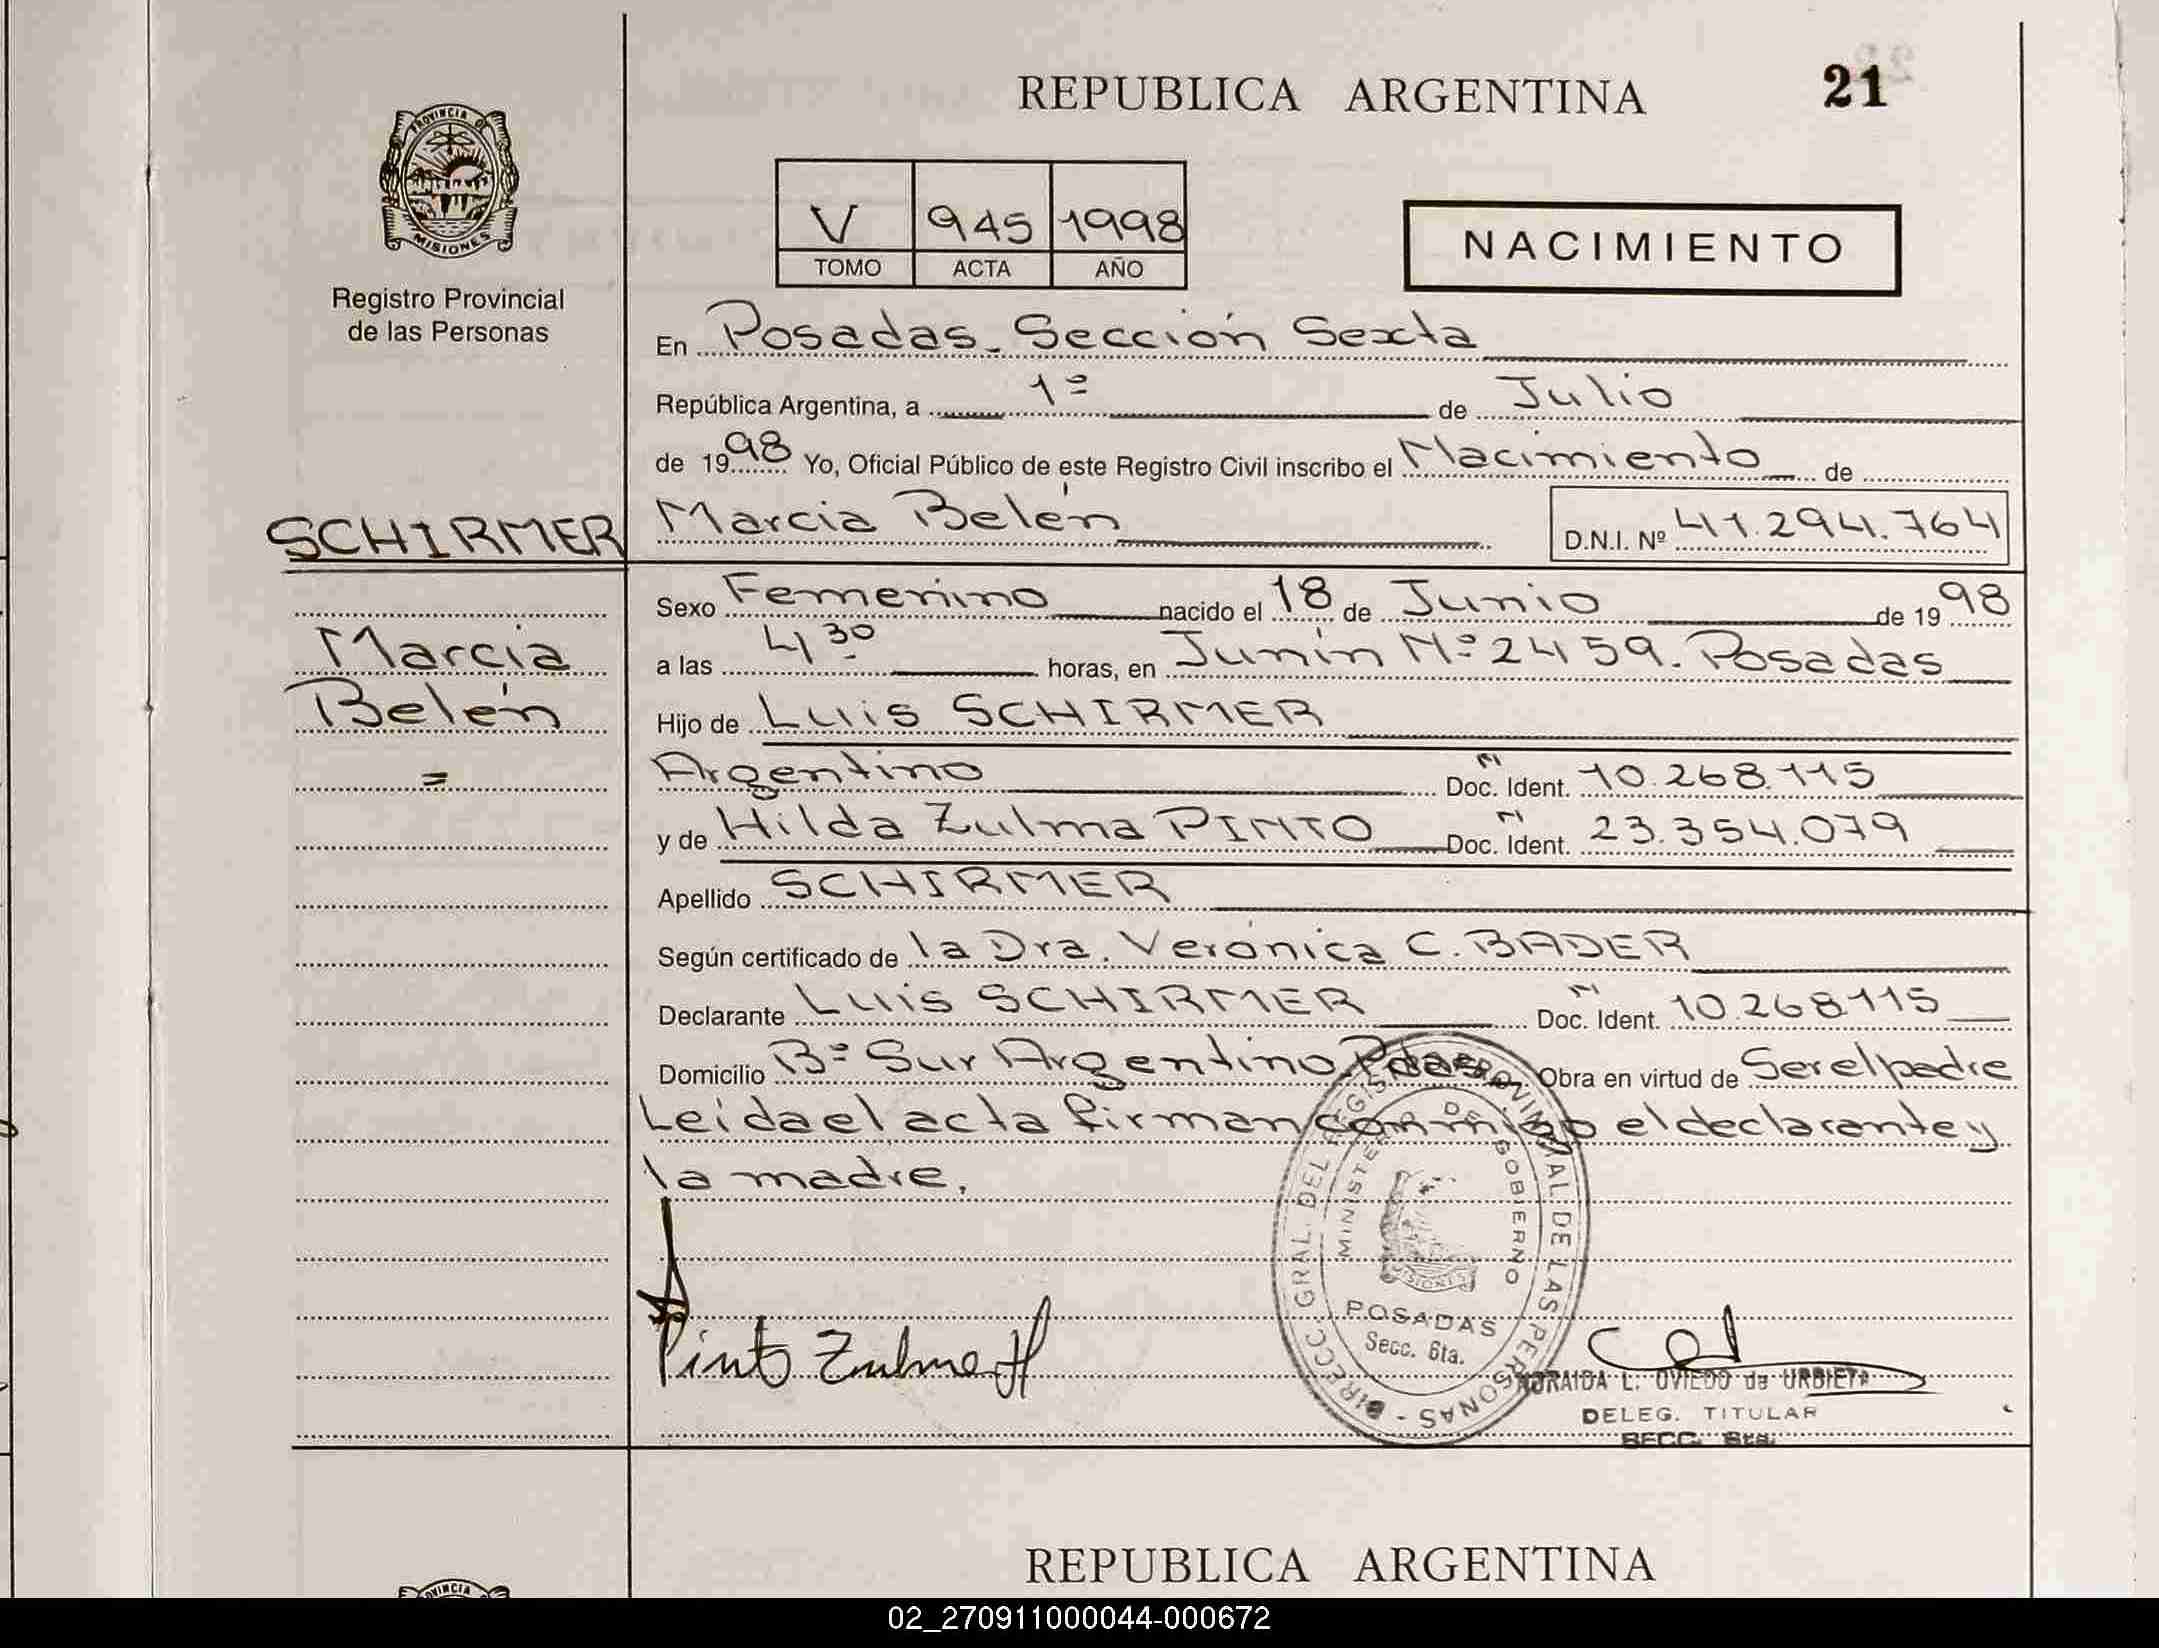 REPUBLICA ARGENTINA
21
PROVINCIA DE
MISIONES
Registro Provincial
de las Personas
V 945 1998
TOMO ACTA AÑO
NACIMIENTO
En Posadas - Sección Sexta
República Argentina, a 1º de Julio
de 1998 Yo, Oficial Público de este Registro Civil inscribo el Nacimiento de
SCHIRMER
Marcia Belén D.N.I. Nº 41.294.764
Sexo Femenino nacido el 18 de Junio de 1998
Marcia
Belén
=
a las 4 30 horas, en Junín Nº 2459. Posadas
Hijo de Luis SCHIRMER
Argentino Doc. Ident. 10.268.115
y de Hilda Zulma PINTO Doc. Ident. 23.354.079
Apellido SCHIRMER
Según certificado de la Dra. Verónica C. BADER
Declarante Luis SCHIRMER Doc. Ident. 10.268.115
Domicilio Bº Sur Argentino. Pdas Obra en virtud de Ser el padre
Leída el acta firman conmigo el declarante y
la madre.
DIRECC. GRAL. DEL REGISTRO PROVINCIAL DE LAS PERSONAS -
MINISTERIO DE GOBIERNO
MISIONES
POSADAS
Secc. 6ta.
Pinto Zulma H
L. OVIEDO de URBIETA
DELEG. TITULAR
SECC. 6ta.
REPUBLICA ARGENTINA
PROVINCIA
02_270911000044-000672